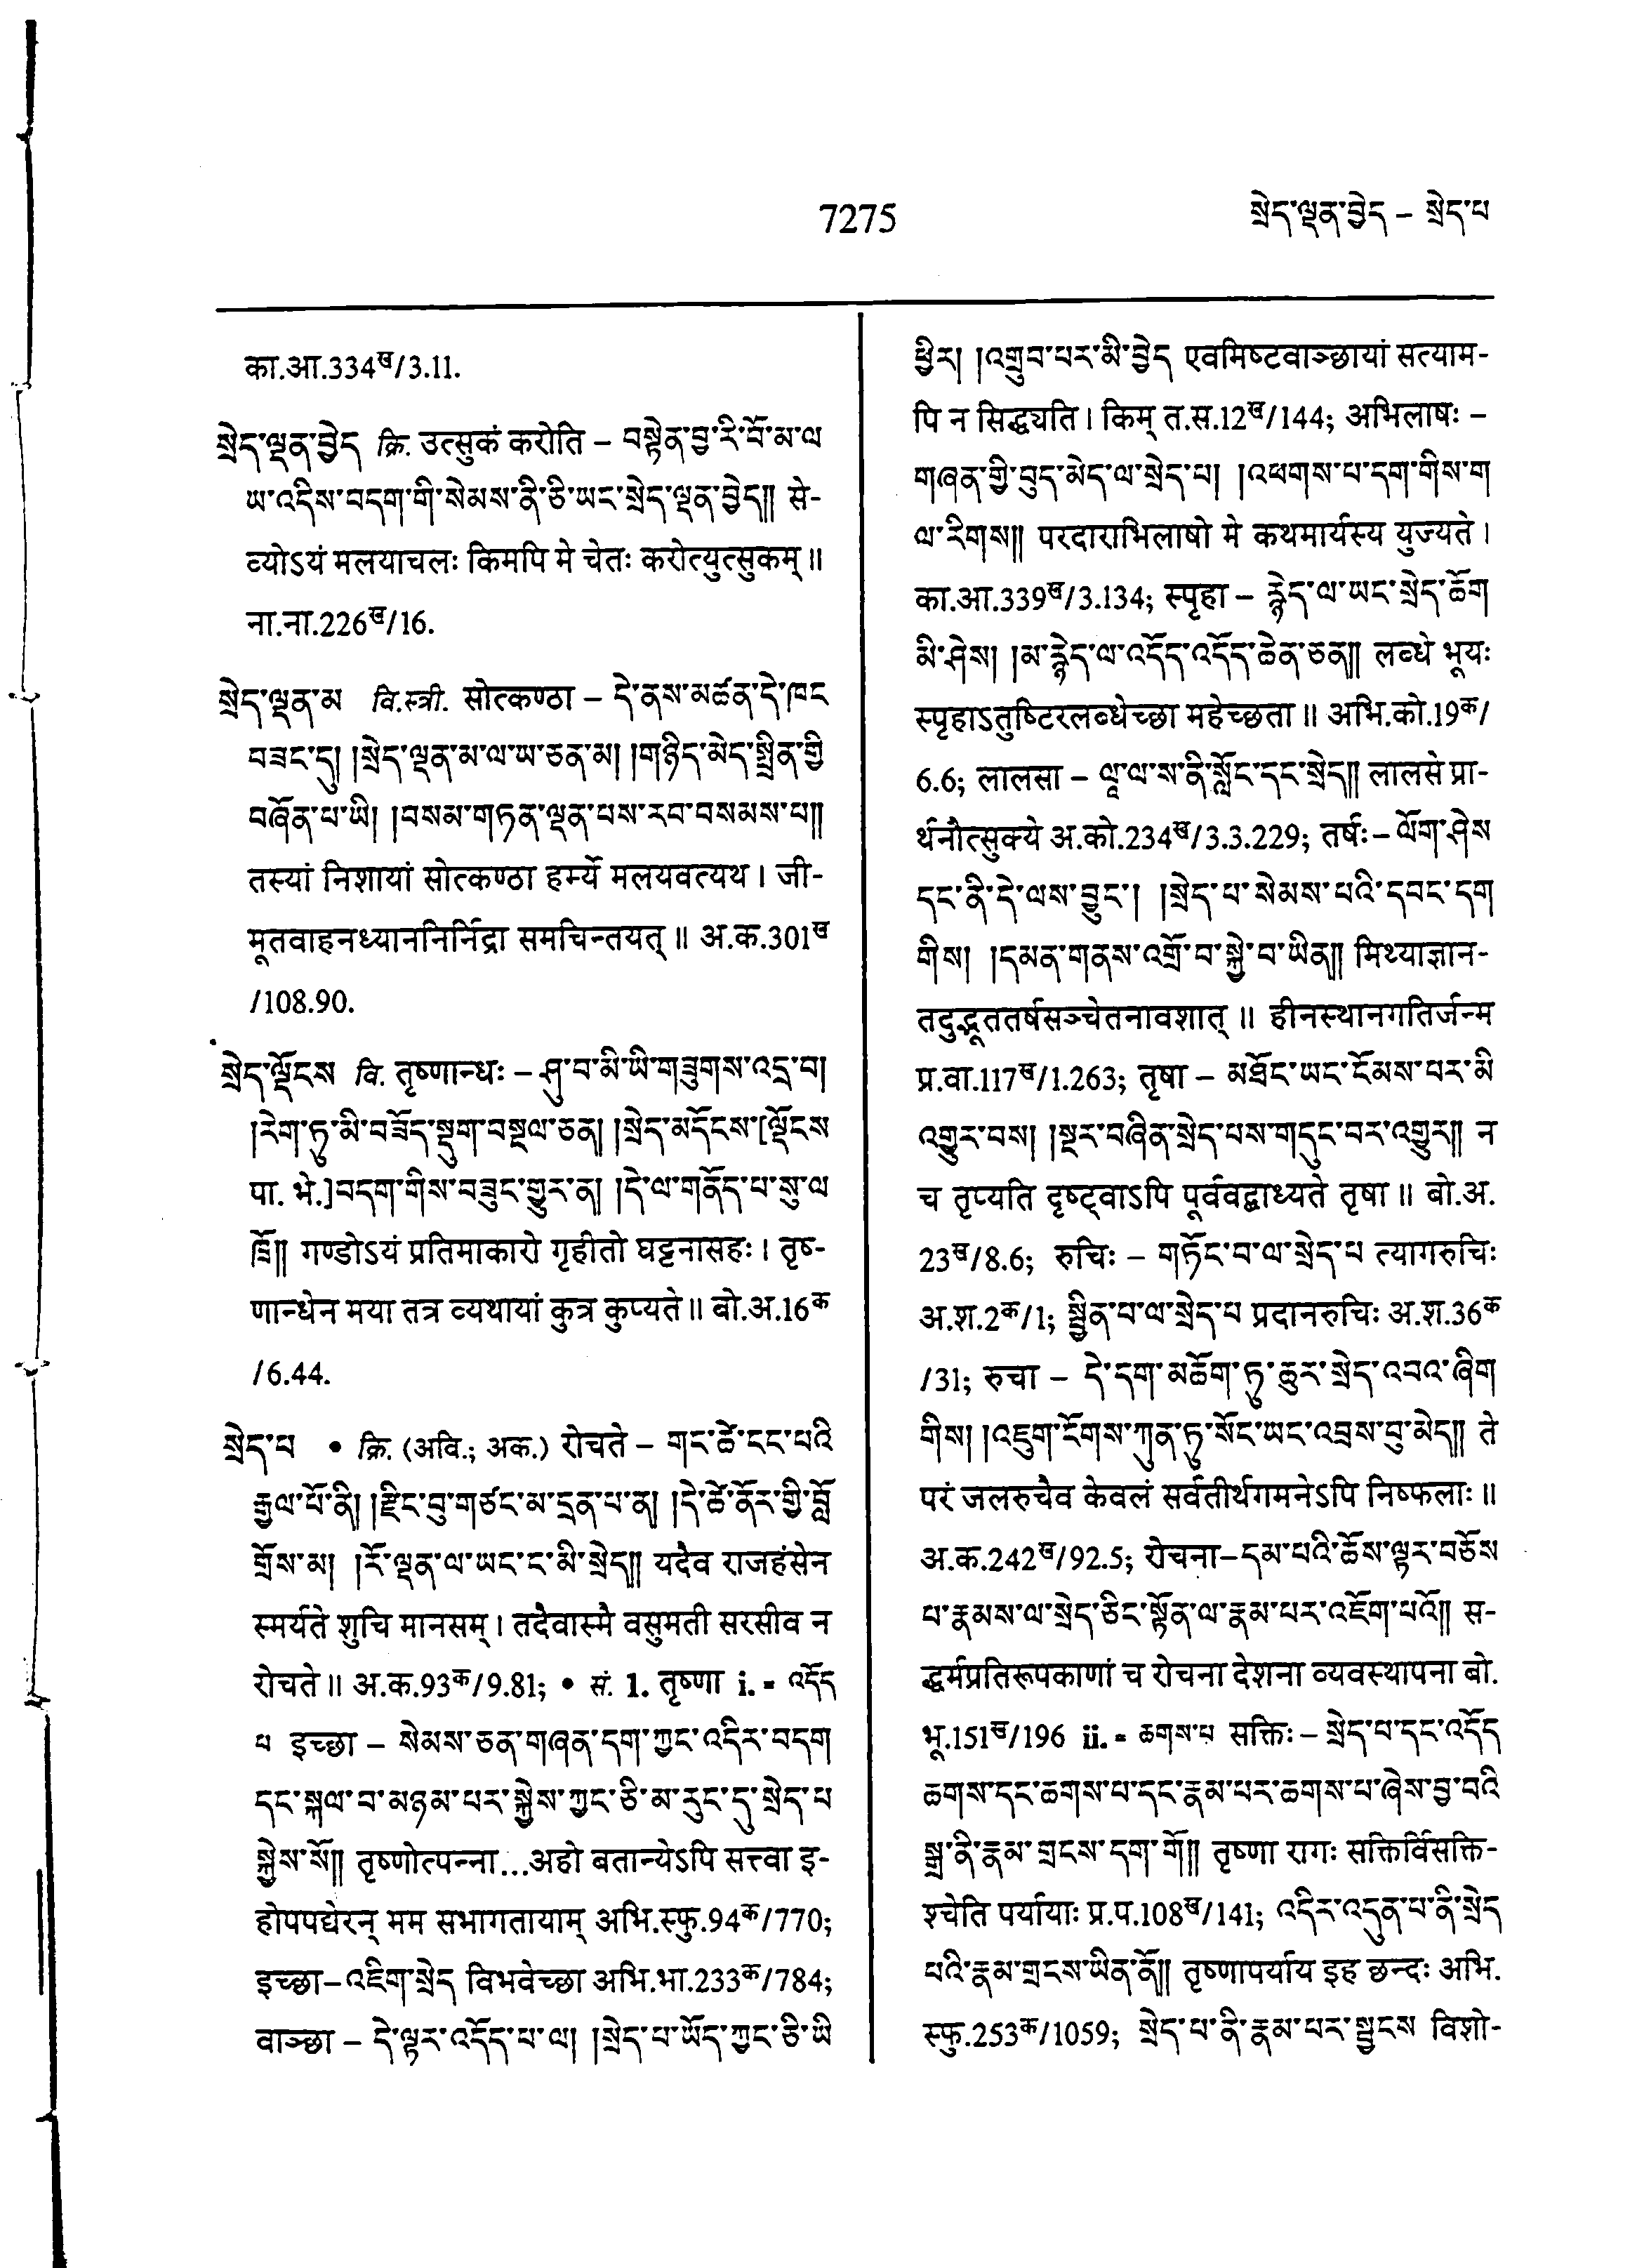 7275
སྲེད་ལྡན་བྱེད – སྲེད་པ
का.आ.334ख/3.11.
སྲེད་ལྡན་བྱེད क्रि. उत्सुकं करोति – བསྟེན་བྱ་རི་བོ་མ་ལ
ཡ་འདིས་བདག་གི་སེམས་ནི་ཅི་ཡང་སྲེད་ལྡན་བྱེད།། से-
व्योऽयं मलयाचलः किमपि मे चेतः करोत्युत्सुकम् ॥
ना.ना.226ख/16.
སྲེད་ལྡན་མ वि.स्त्री. सोत्कण्ठा – དེ་ནས་མཚན་དེ་ཁང
བཟང་དུ། །སྲེད་ལྡན་མ་ལ་ཡ་ཅན་མ། །གཉིད་མེད་སྤྲིན་གྱི
བཞོན་པ་ཡི། །བསམ་གཏན་ལྡན་པས་རབ་བསམས་པ།།
तस्यां निशायां सोत्कण्ठा हर्म्ये मलयवत्यथ । जी-
मूतवाहनध्याननिर्निद्रा समचिन्तयत् ॥ अ.क.301ख
/108.90.
སྲེད་ལྡོངས वि. तृष्णान्धः – ཤུ་བ་མི་ཡི་གཟུགས་འདྲ་བ།
།རེག་ཏུ་མི་བཟོད་སྡུག་བསྔལ་ཅན། །སྲེད་མདོངས་[ལྡོངས
पा. भे.]བདག་གིས་བཟུང་གྱུར་ན། །དེ་ལ་གནོད་པ་སུ་ལ
ཁྲོ།། गण्डोऽयं प्रतिमाकारो गृहीतो घट्टनासहः । तृष्-
णान्धेन मया तत्र व्यथायां कुत्र कुप्यते ॥ बो.अ.16क
/6.44.
སྲེད་པ • क्रि. (अवि.; अक.) रोचते – གང་ཚེ་ངང་པའི
རྒྱལ་པོ་ནི། །རྫིང་བུ་གཙང་མ་དྲན་པ་ན། །དེ་ཚེ་ནོར་གྱི་བློ
གྲོས་མ། །རོ་ལྡན་ལ་ཡང་ང་མི་སྲེད།། यदैव राजहंसेन
स्मर्यते शुचि मानसम् । तदैवास्मै वसुमती सरसीव न
रोचते ॥ अ.क.93क/9.81; • सं. 1. तृष्णा i. = འདོད
པ इच्छा – སེམས་ཅན་གཞན་དག་ཀྱང་འདིར་བདག
དང་སྐལ་བ་མཉམ་པར་སྐྱེས་ཀྱང་ཅི་མ་རུང་དུ་སྲེད་པ
སྐྱེས་སོ།། तृष्णोत्पन्ना...अहो बतान्येऽपि सत्त्वा इ-
होपपद्येरन् मम सभागतायाम् अभि.स्फु.94क/770;
इच्छा–འཇིག་སྲེད विभवेच्छा अभि.भा.233क/784;
वाञ्छा – དེ་ལྟར་འདོད་པ་ལ། །སྲེད་པ་ཡོད་ཀྱང་ཅི་ཡི
ཕྱིར། །འགྲུབ་པར་མི་བྱེད एवमिष्टवाञ्छायां सत्याम-
पि न सिद्ध्यति । किम् त.स.12ख/144; अभिलाषः –
གཞན་གྱི་བུད་མེད་ལ་སྲེད་པ། །འཕགས་པ་དག་གིས་ག
ལ་རིགས།། परदाराभिलाषो मे कथमार्यस्य युज्यते ।
का.आ.339ख/3.134; स्पृहा – རྙེད་ལ་ཡང་སྲེད་ཆོག
མི་ཤེས། །མ་རྙེད་ལ་འདོད་འདོད་ཆེན་ཅན།། लब्धे भूयः
स्पृहाऽतुष्टिरलब्धेच्छा महेच्छता ॥ अभि.को.19क/
6.6; लालसा – ལཱ་ལ་ས་ནི་སློང་དང་སྲེད།། लालसे प्रा-
र्थनौत्सुक्ये अ.को.234ख/3.3.229; तर्षः – ལོག་ཤེས
དང་ནི་དེ་ལས་བྱུང་། །སྲེད་པ་སེམས་པའི་དབང་དག
གིས། །དམན་གནས་འགྲོ་བ་སྐྱེ་བ་ཡིན།། मिथ्याज्ञान-
तदुद्भूततर्षसञ्चेतनावशात् ॥ हीनस्थानगतिर्जन्म
प्र.वा.117ख/1.263; तृषा – མཐོང་ཡང་ངོམས་པར་མི
འགྱུར་བས། །སྔར་བཞིན་སྲེད་པས་གདུང་བར་འགྱུར།། न
च तृप्यति दृष्ट्वाऽपि पूर्ववद्बाध्यते तृषा ॥ बो.अ.
23ख/8.6; रुचिः – གཏོང་བ་ལ་སྲེད་པ त्यागरुचिः
अ.श.2क/1; སྦྱིན་པ་ལ་སྲེད་པ प्रदानरुचिः अ.श.36क
/31; रुचा – དེ་དག་མཆོག་ཏུ་ཆུར་སྲེད་འབའ་ཞིག
གིས། །འཇུག་ངོགས་ཀུན་ཏུ་སོང་ཡང་འབྲས་བུ་མེད།། ते
परं जलरुचैव केवलं सर्वतीर्थगमनेऽपि निष्फलाः ॥
अ.क.242ख/92.5; रोचना–དམ་པའི་ཆོས་ལྟར་བཅོས
པ་རྣམས་ལ་སྲེད་ཅིང་སྟོན་ལ་རྣམ་པར་འཇོག་པའོ།། स-
द्धर्मप्रतिरूपकाणां च रोचना देशना व्यवस्थापना बो.
भू.151ख/196 ii. = ཆགས་པ सक्तिः – སྲེད་པ་དང་འདོད
ཆགས་དང་ཆགས་པ་དང་རྣམ་པར་ཆགས་པ་ཞེས་བྱ་བའི
སྒྲ་ནི་རྣམ་གྲངས་དག་གོ།། तृष्णा रागः सक्तिर्विसक्ति-
श्चेति पर्यायाः प्र.प.108ख/141; འདིར་འདུན་པ་ནི་སྲེད
པའི་རྣམ་གྲངས་ཡིན་ནོ།། तृष्णापर्याय इह छन्दः अभि.
स्फु.253क/1059; སྲེད་པ་ནི་རྣམ་པར་སྦྱངས विशो-